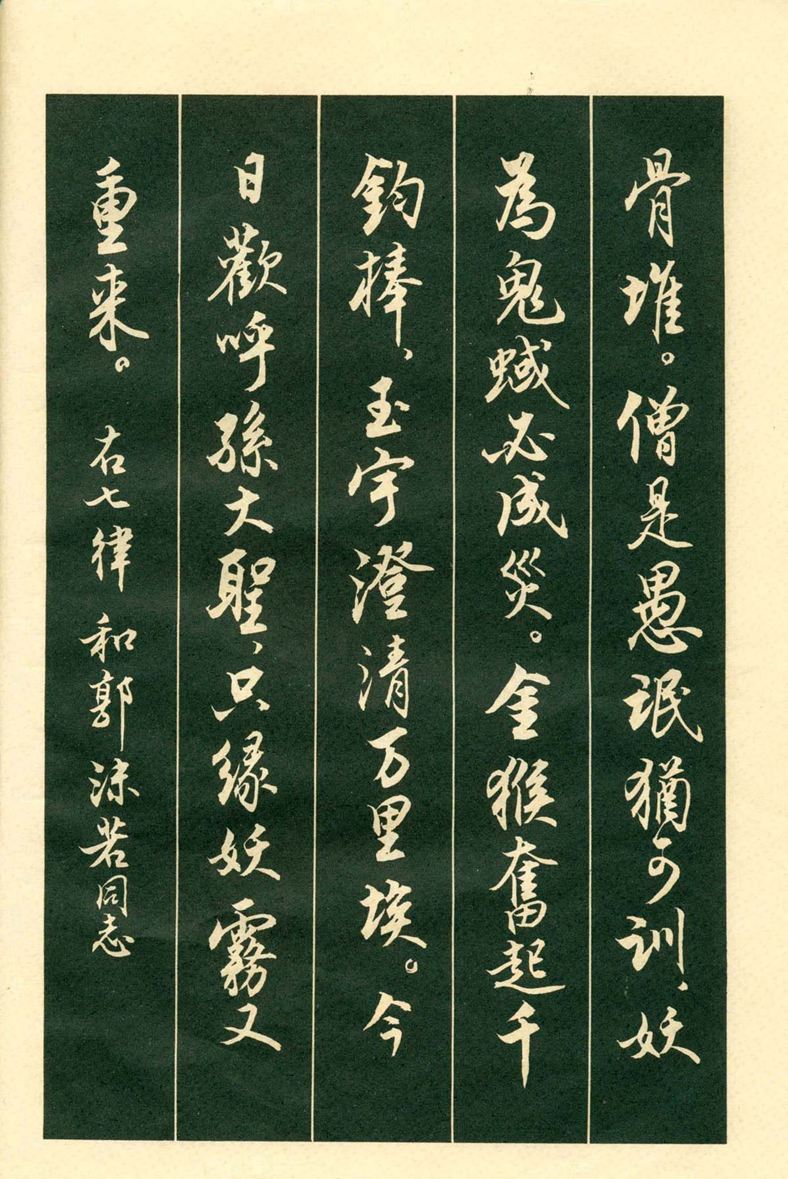 骨堆。僧是愚氓猶可訓、妖
為鬼蜮必成災。金猴奮起千
鈞棒、玉宇澄清万里埃。今
日歡呼孫大聖、只緣妖霧又
重来。 右七律 和郭沫若同志